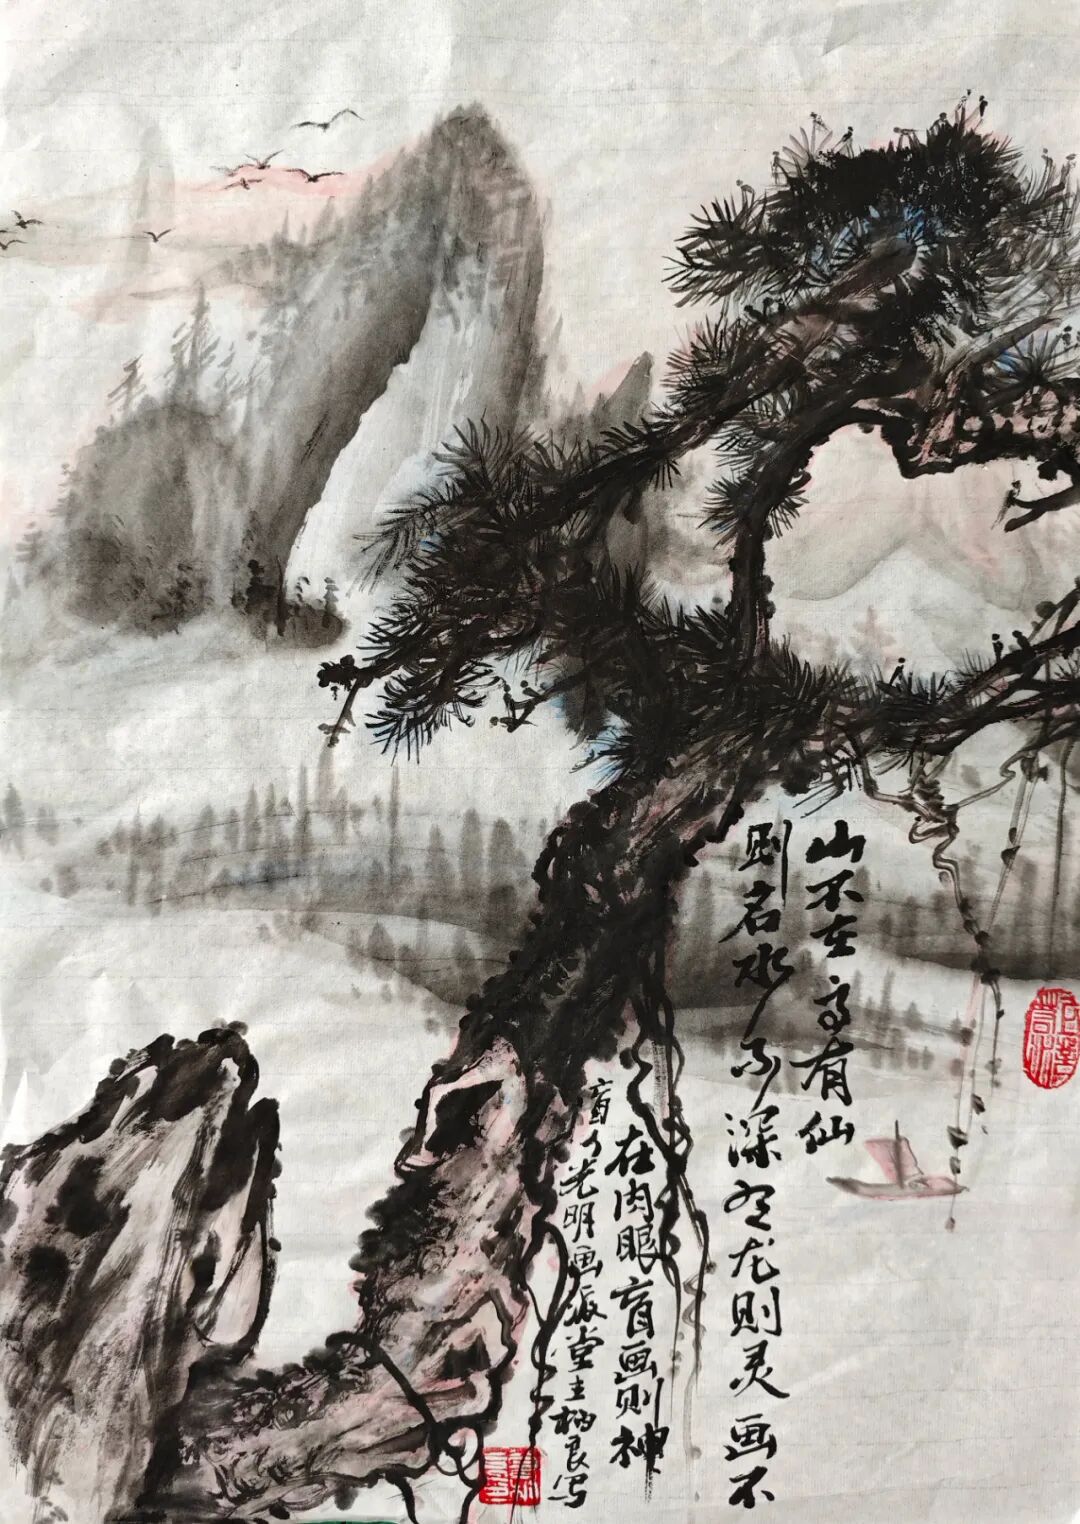 山不在高有仙
则名水不深有龙则灵画不
在肉眼盲画则神
盲人光明画派堂主柄良写